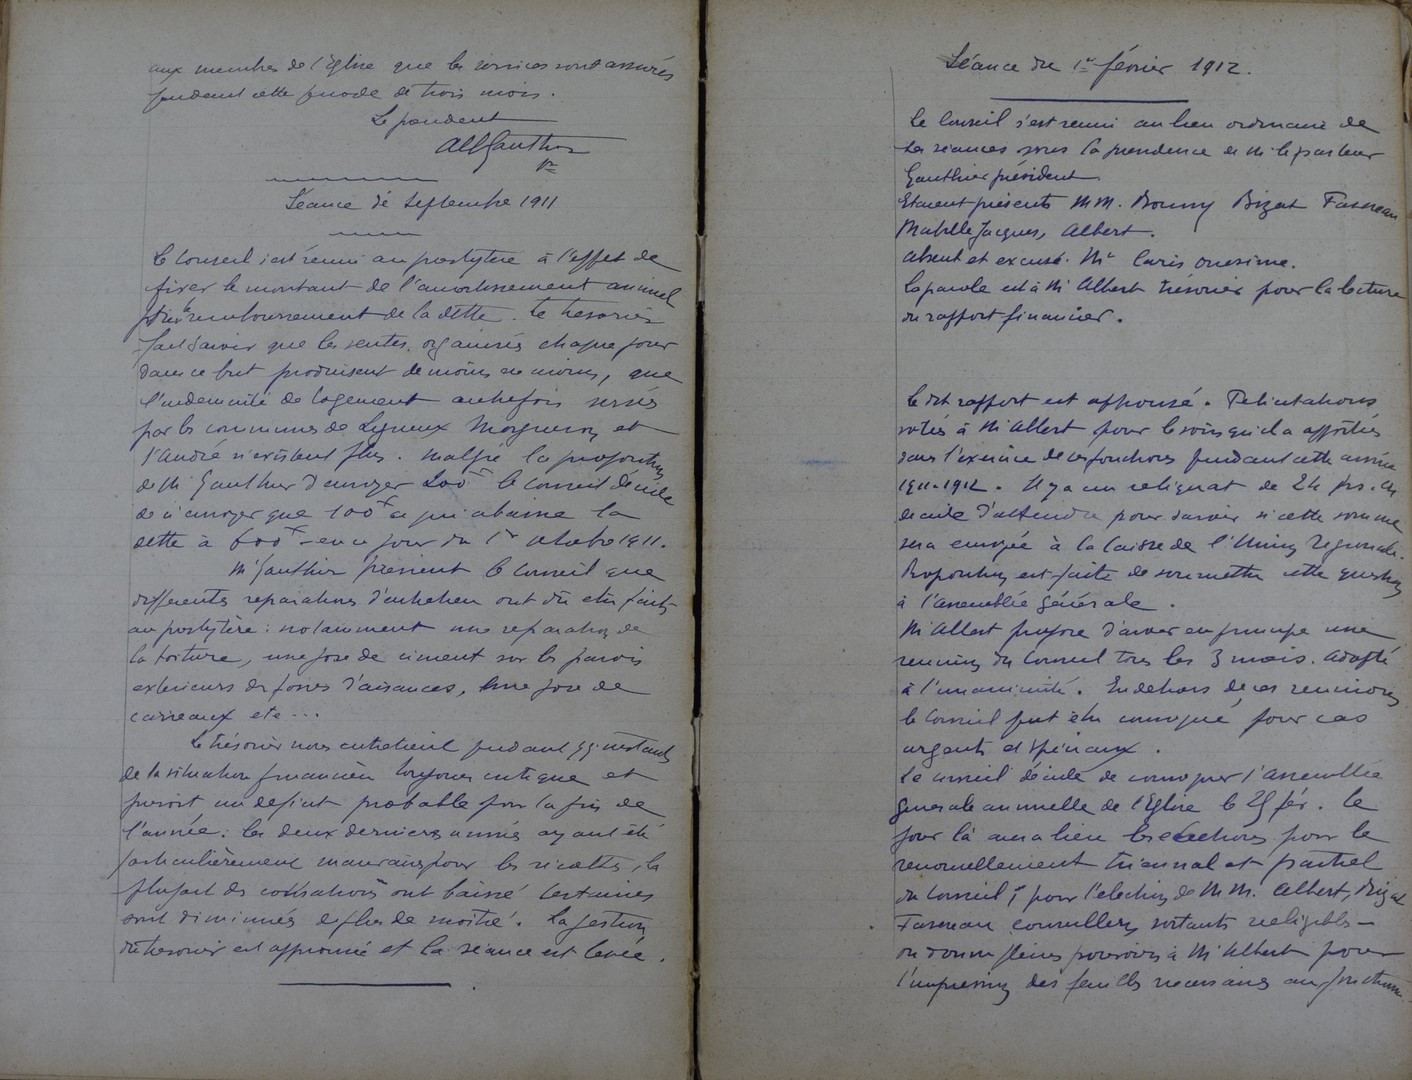 aux membres de l'Eglise que les services sont assurés
pendant cette période de trois mois.
Le président
Alb Gauthier
Séance de Septembre 1911
Le Conseil s'est réuni au presbytère à l'effet de
fixer le montant de l'amortissement annuel
pour le remboursement de la dette. Le trésorier
fait savoir que les ventes organisées chaque jour
dans ce but produisent de moins en moins, que
l'indemnité de logement autrefois versée
par les communes de Ligueux Margueron et
St André n'existent plus. Malgré la proposition
de Mr Gauthier d'envoyer 200f le Conseil décide
de n'envoyer que 100f ce qui abaisse la
dette à 600f en ce jour du 1er octobre 1911.
Mr Gauthier prévient le Conseil que
différentes réparations d'entretien ont dû être faites
au presbytère: notamment une réparation de
la toiture, une pose de ciment sur les parois
extérieurs des fosses d'aisances, une pose de
carreaux etc...
Le trésorier nous entretient pendant qq. instants
de la situation financière toujours critique et
prévoit un déficit probable pour la fin de
l'année: les deux dernières années ayant été
particulièrement mauvaises pour les récoltes, la
plupart des cotisations ont baissé certaines
sont diminuées de plus de moitié. La gestion
du trésorier est approuvée et la séance est levée.
Séance du 1er février 1912.
Le Conseil s'est réuni au lieu ordinaire de
ses séances sous la présidence de Mr le pasteur
Gauthier président
Etaient présents MM. Bizat
Jacques, Albert.
Absent et excusé. Mr Onésime.
La parole est à Mr Albert trésorier pour la lecture
du rapport financier.
Le dit rapport est approuvé. Félicitations
votées à Mr Albert pour le soin qu'il a apporté
dans l'exercice de ces fonctions pendant cette année
1911-1912. Il y a un reliquat de 24 frs. On
décide d'attendre pour savoir si cette somme
sera envoyée à la Caisse de l'Union régionale.
Proposition est faite de soumettre cette question
à l'assemblée générale.
Mr Albert propose d'avoir en principe une
réunion du Conseil tous les 3 mois. Adopté
à l'unanimité. En dehors de ces réunions
le Conseil peut être convoqué pour cas
urgents et spéciaux.
Le conseil décide de convoquer l'assemblée
générale annuelle de l'Eglise le 25 fév. Ce
jour là aura lieu les élections pour le
renouvellement triennal et partiel
du Conseil, pour l'élection de MM. Albert, Bizat
conseillers sortants rééligibles –
on donne pleins pouvoirs à Mr Albert pour
l'impression des feuilles nécessaires au